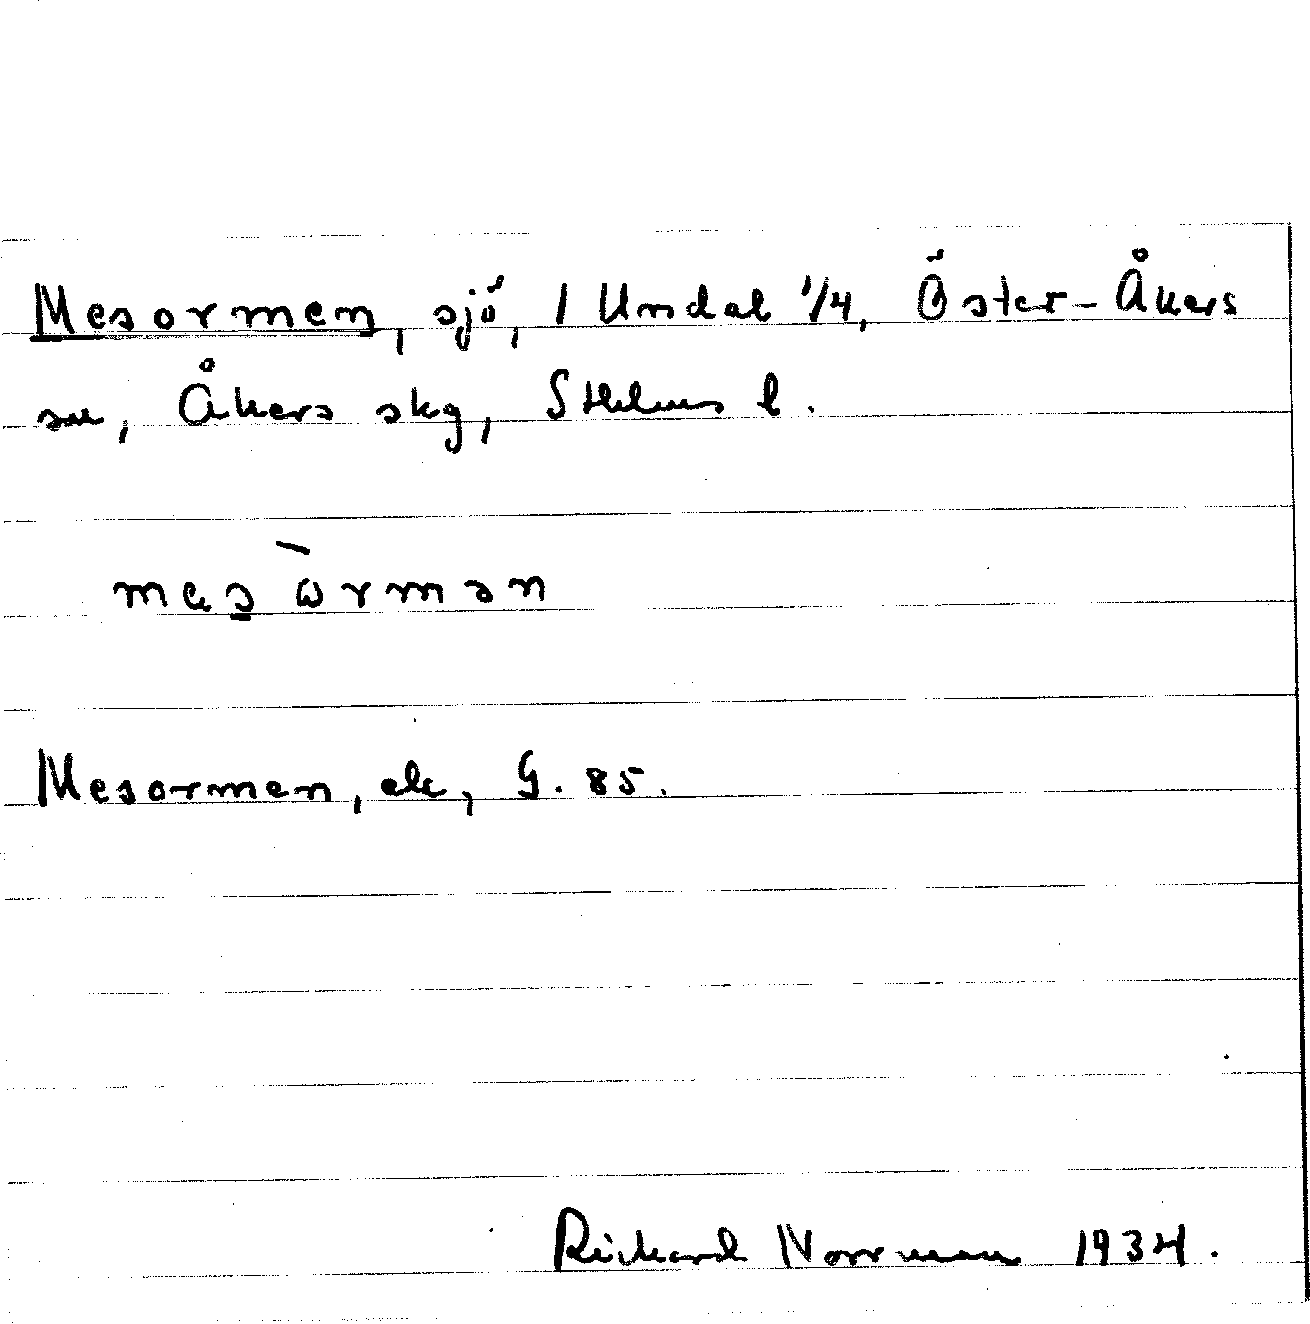 Mesormen, sjö, 1 Undal 1/4, Öster-Åkers
sn, Åkers skg, Sthlms l.
mesòrmən
Mesormen, ek, G. 85.
Rickard Norrman 1934.